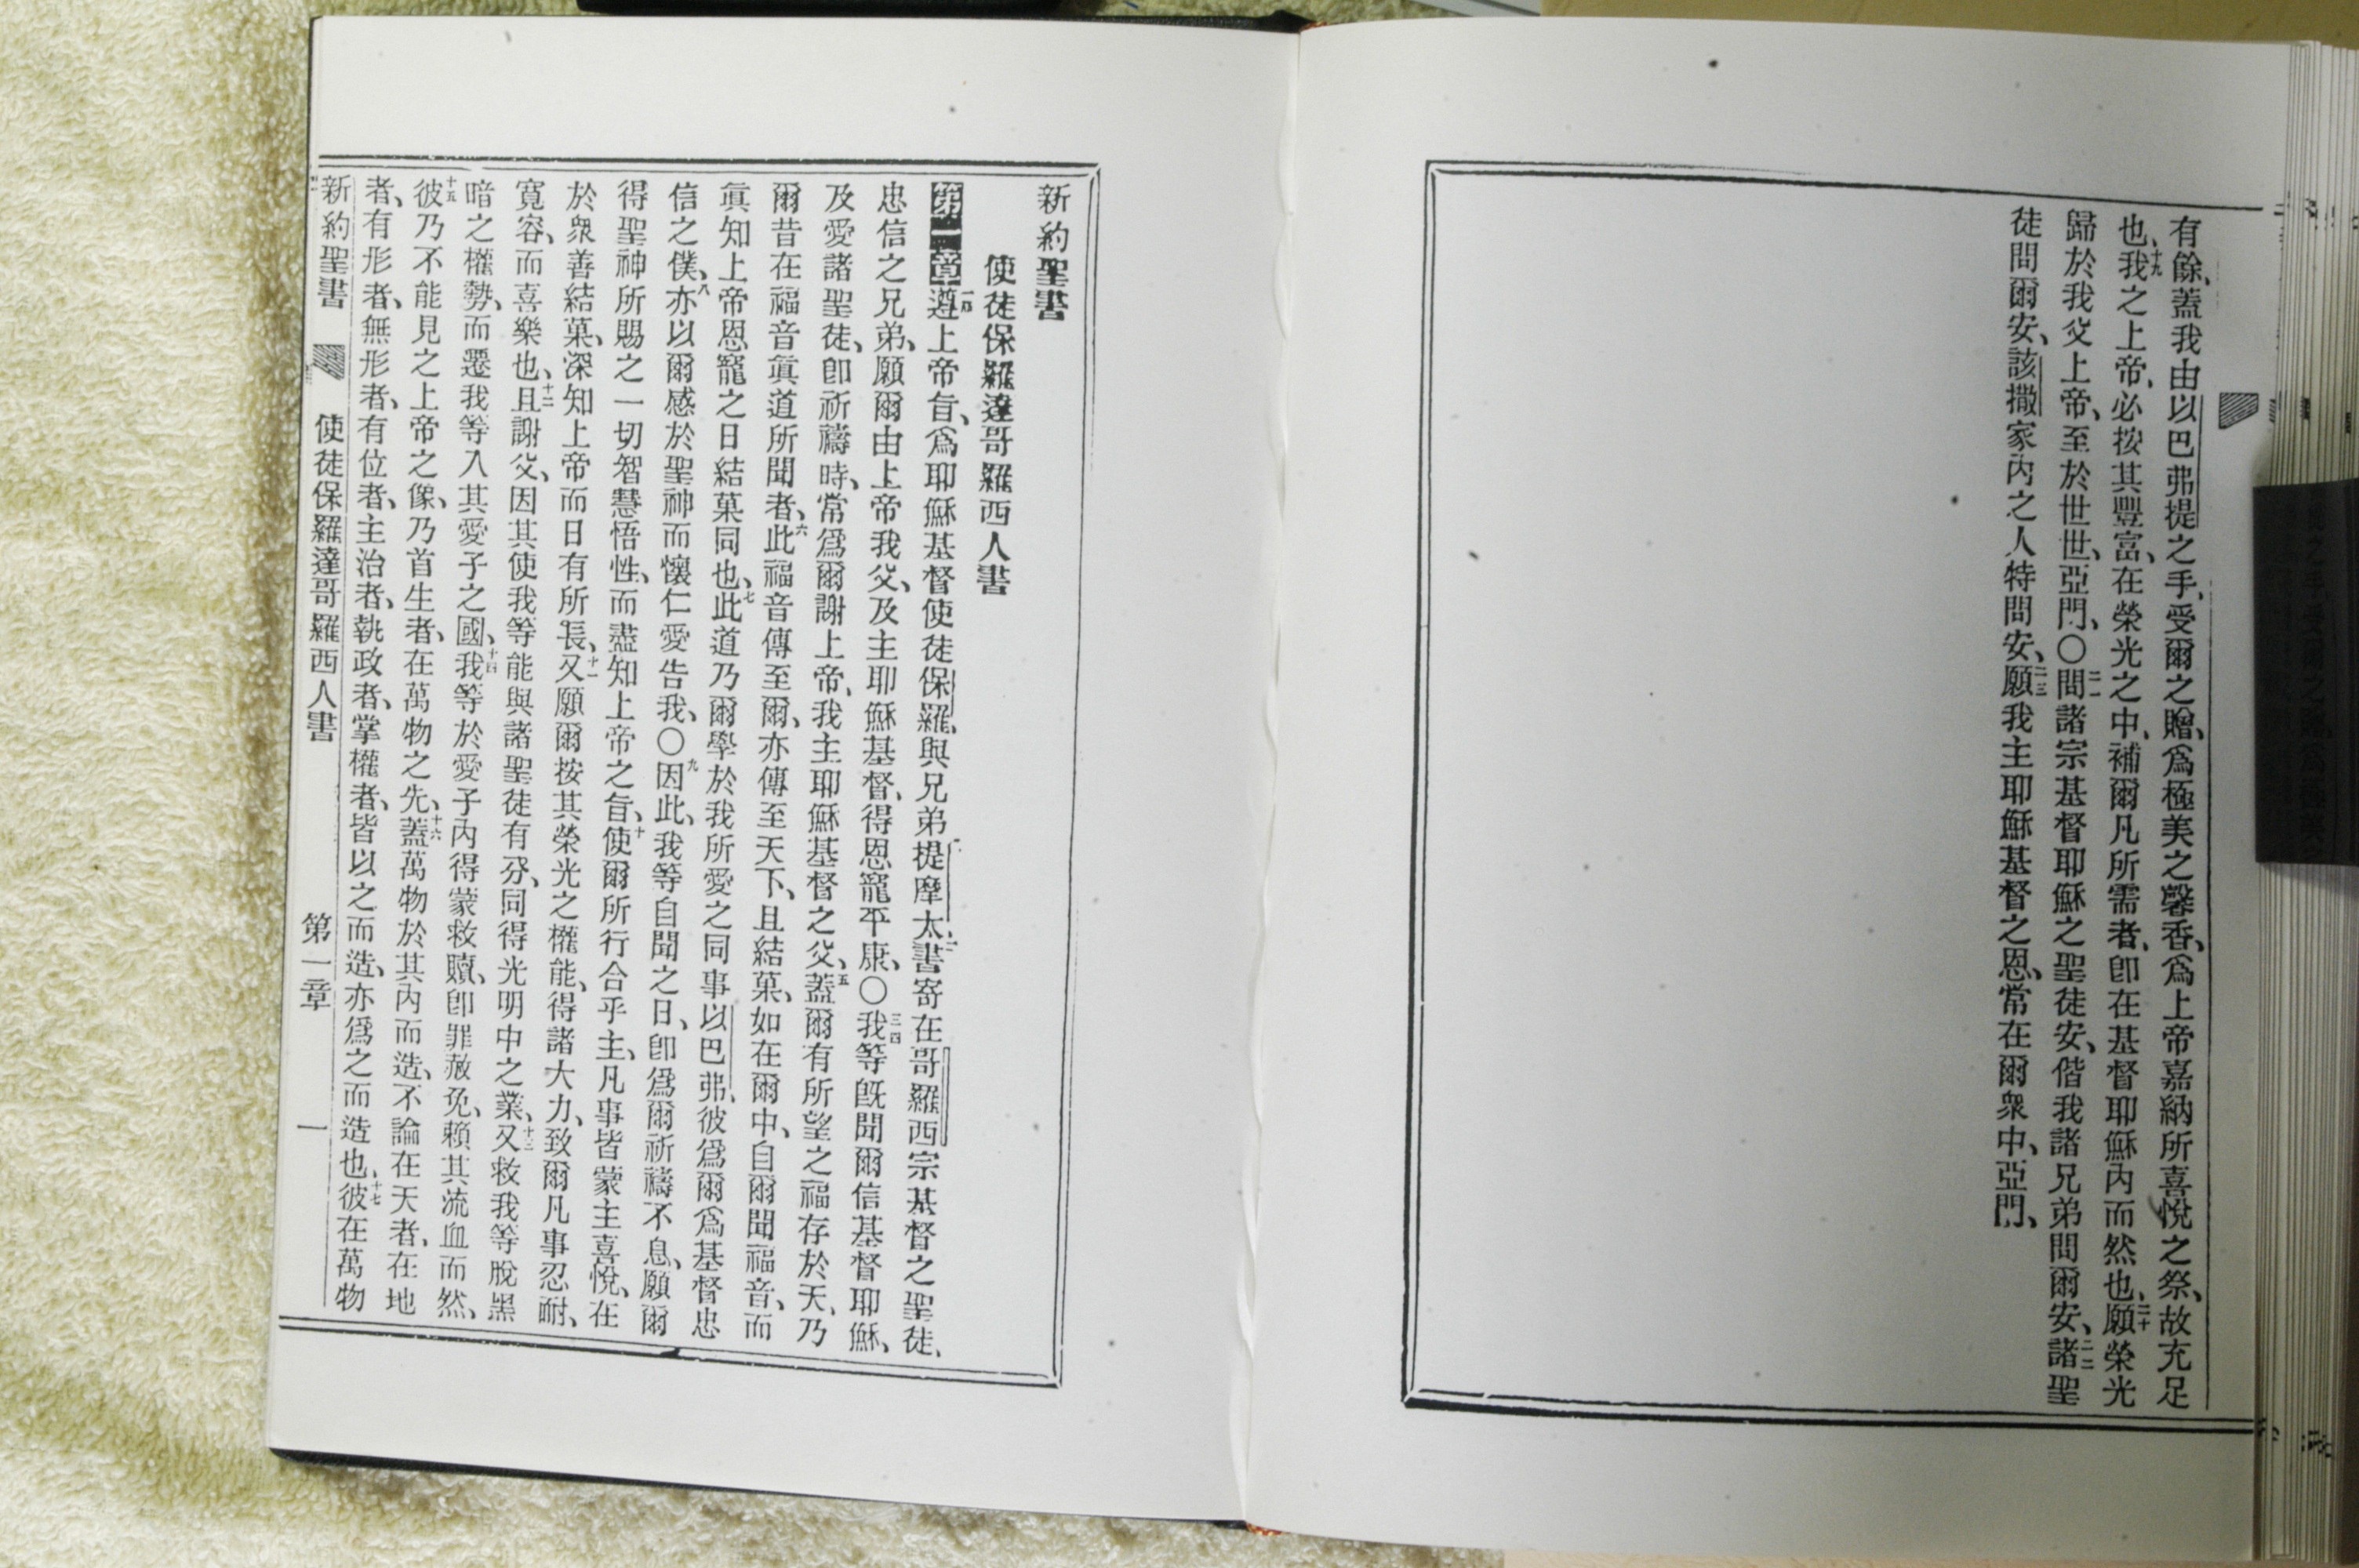 有餘、蓋我由以巴弗提之手、受爾之贈、爲極美之馨香、爲上帝嘉納所喜悅之祭、故充足
也、十九我之上帝、必按其豐富、在榮光之中、補爾凡所需者、卽在基督耶穌內而然也、二十願榮光
歸於我父上帝、至於世世、亞門、〇二一問諸宗基督耶穌之聖徒安、偕我諸兄弟問爾安、二二諸聖
徒問爾安、該撒家內之人特問安、二三願我主耶穌基督之恩、常在爾衆中、亞門、
新約聖書
使徒保羅達哥羅西人書
第一章一遵上帝旨、爲耶穌基督使徒保羅、與兄弟提摩太、二書寄在哥羅西宗基督之聖徒、
忠信之兄弟、願爾由上帝我父、及主耶穌基督、得恩寵平康、〇三四我等旣聞爾信基督耶穌、
及愛諸聖徒、卽祈禱時、常爲爾謝上帝、我主耶穌基督之父、五蓋爾有所望之福存於天、乃
爾昔在福音眞道所聞者、六此福音傳至爾、亦傳至天下、且結菓、如在爾中、自爾聞福音、而
眞知上帝恩寵之日結菓同也、七此道乃爾學於我所愛之同事以巴弗、彼爲爾爲基督忠
信之僕、八亦以爾感於聖神而懷仁愛告我、〇九因此、我等自聞之日、卽爲爾祈禱不息、願爾
得聖神所賜之一切智慧悟性、而盡知上帝之旨、十使爾所行合乎主、凡事皆蒙主喜悅、在
於衆善結菓、深知上帝而日有所長、十一又願爾按其榮光之權能、得諸大力、致爾凡事忍耐、
寬容、而喜樂也、十二且謝父、因其使我等能與諸聖徒有分、同得光明中之業、十三又救我等脫黑
暗之權勢、而遷我等入其愛子之國、十四我等於愛子內得蒙救贖、卽罪赦免、賴其流血而然、
十五彼乃不能見之上帝之像、乃首生者、在萬物之先、十六蓋萬物於其內而造、不論在天者、在地
者、有形者、無形者、有位者、主治者、執政者、掌權者、皆以之而造、亦爲之而造也、十七彼在萬物
新約聖書 使徒保羅達哥羅西人書 第一章 一